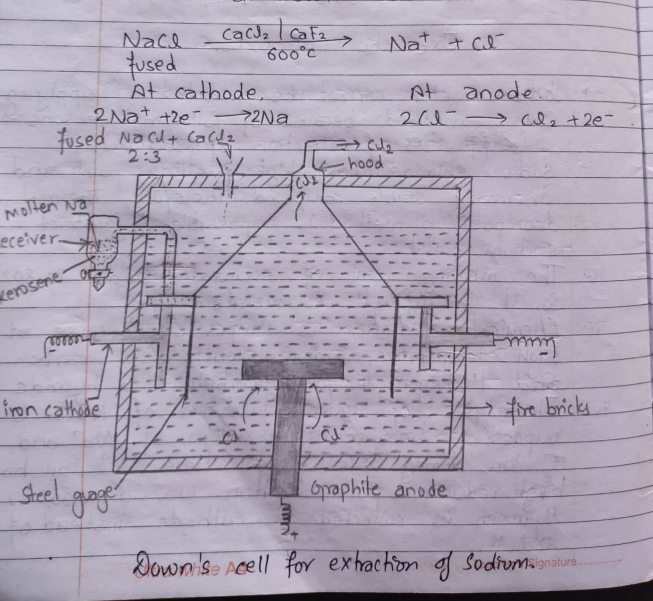 NaCl CaCl2 | CaF2 → Na+ + Cl-
fused 600°C
At cathode, At anode.
2Na+ + 2e- → 2Na 2Cl- → Cl2 + 2e-
fused NaCl + CaCl2
2:3
→ Cl2
hood
Cl2
molten Na
eceiver
kerosene
iron cathode
fire bricks
Cl- Cl-
Steel guage
Graphite anode
+
Down's cell for extraction of Sodium.
Signature